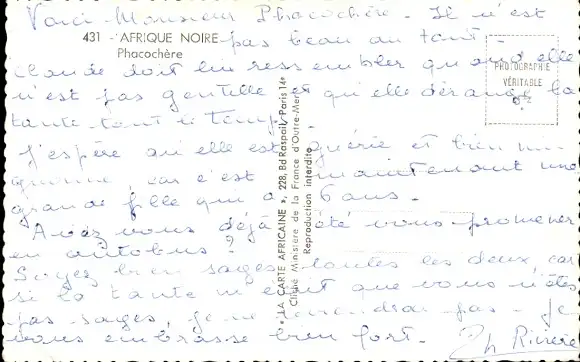 Voici Monsieur Phacochère. Il n'est
431 - AFRIQUE NOIRE
Phacochère
pas beau du tout.
Claude doit lui ressembler quand elle
n'est pas gentille et qu'elle dérange la
tante tout le temps.
J'espère qu'elle est guérie et bien
car c'est maintenant une
grande fille qui a 6 ans.
Avez vous déjà été vous promener
en autobus ?
Soyez bien sages toutes les deux car
si la tante m'écrit que vous n'êtes
pas sages, je ne viendrai pas. Je
vous embrasse bien fort. Rivière
PHOTOGRAPHIE
VÉRITABLE
« LA CARTE AFRICAINE », 228, Bd Raspail, Paris 14e
Cliché Ministère de la France d'Outre-Mer
Reproduction interdite